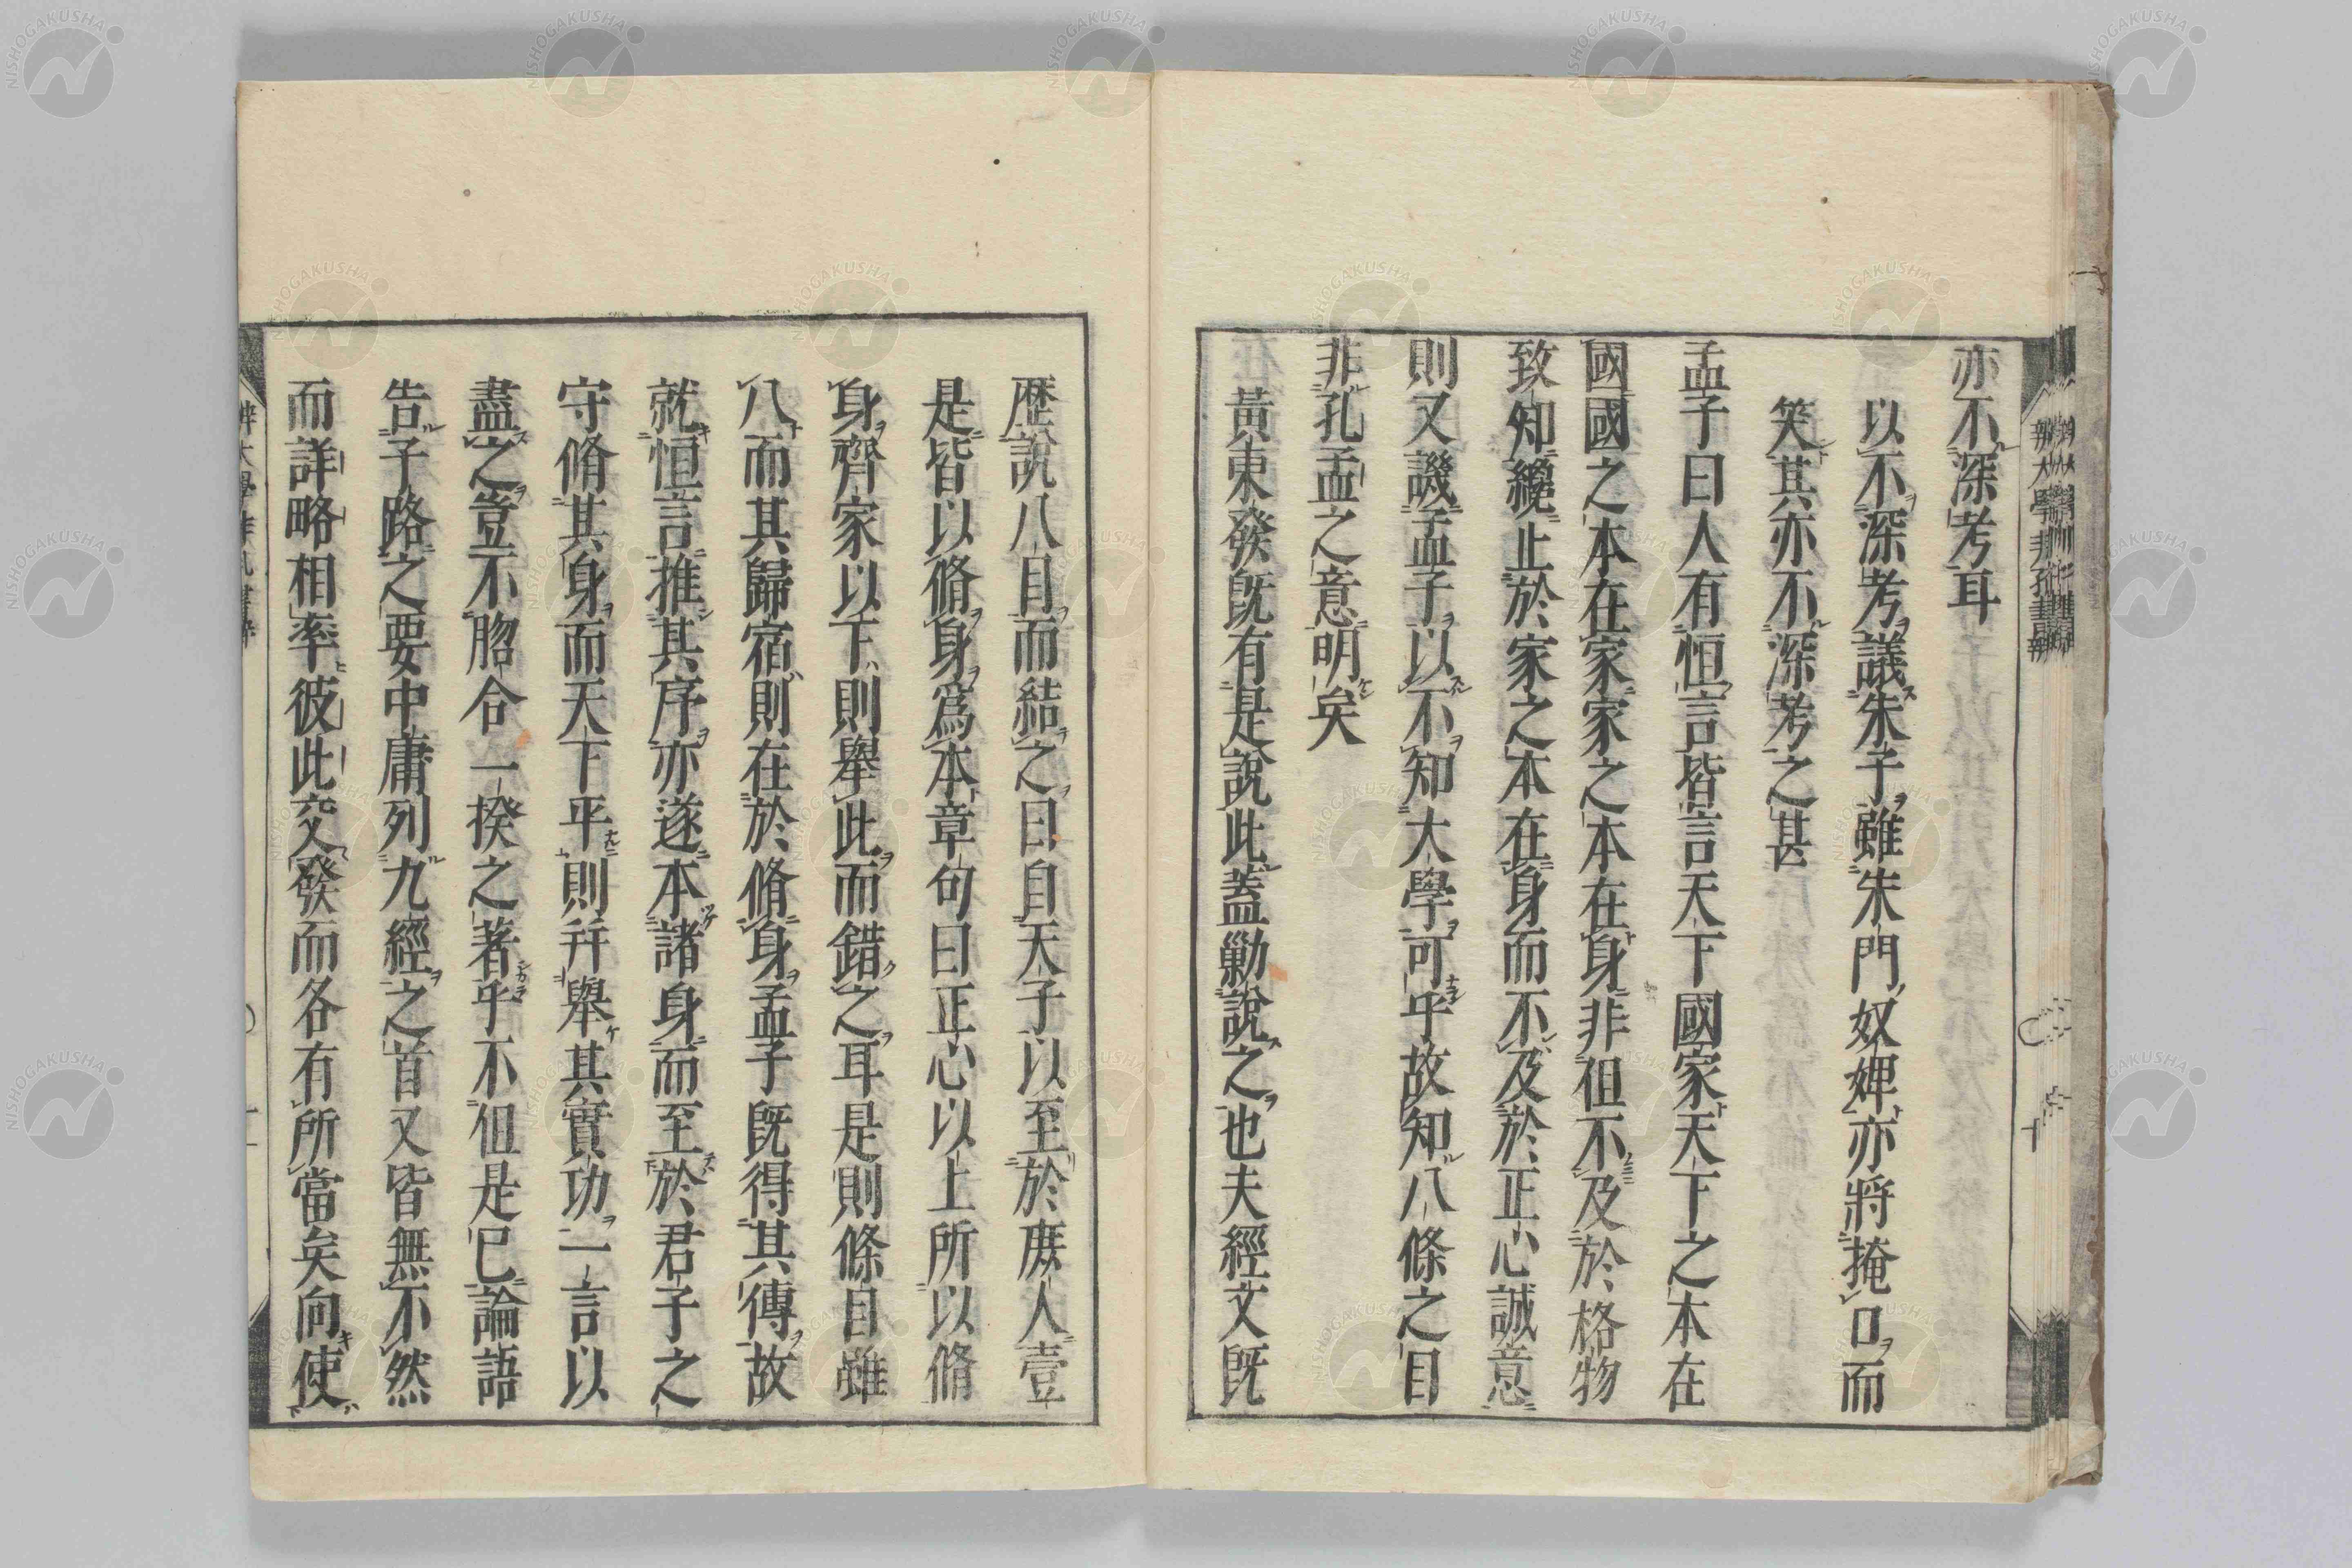 亦不深考耳
以不深考議朱子雖朱門奴婢亦將掩口而
笑其亦不深考之甚
孟子曰人有恒言皆言天下國家天下之本在
國國之本在家家之本在身非徂不及於格物
致知纔止於家之本在身而不及於正心誠意
則又譏孟子以不知大學可乎故知八條之目
非孔孟之意明矣
黃東發既有是說此蓋勦說之也夫經文既
歷說八目而結之曰自天子以至於庶人壹
是皆以脩身爲本章句曰正心以上所以脩
身齊家以下則舉此而錯之耳是則條目雖
八而其歸宿則在於脩身孟子既得其傳故
就恒言推其序亦遂本諸身而至於君子之
守脩其身而天下平則幷舉其實功一言以
盡之豈不脗合一揆之著乎不徂是已論語
告子路之要中庸列九經之首又皆無不然
而詳略相率彼此交發而各有所當矣向使